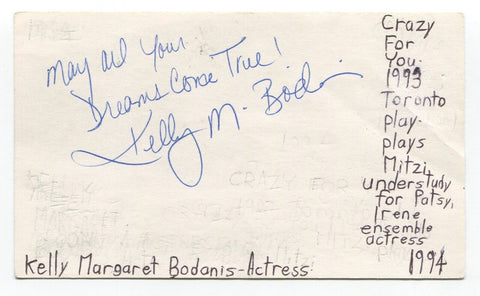 May all Your
Dreams Come True!
Kelly M. Bodanis
Crazy
For
You
1993
Toronto
play-
plays
Mitzi,
understudy
for Patsy,
Irene
ensemble
actress
1994
Kelly Margaret Bodanis-Actress